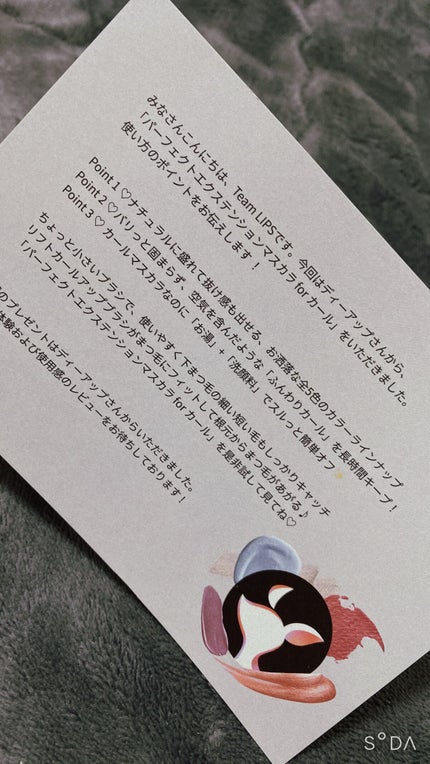 みなさんこんにちは、Team LIPSです。今回はディーアップさんから、
「パーフェクトエクステンションマスカラ for カール」をいただきました。
使い方のポイントをお伝えします！
Point 1 ♡ナチュラルに盛れて抜け感も出せる、お洒落な全5色のカラーラインナップ
Point 2 ♡パリっと固まらず、空気を含んだような「ふんわりカール」を長時間キープ！
Point 3 ♡ カールマスカラなのに「お湯」+「洗顔料」でスルっと簡単オフ
ちょっと小さいブラシで、使いやすく下まつ毛の細い短い毛もしっかりキャッチ
リフトカールアップブラシがまつ毛にフィットして根元からまつ毛があがる♪
「パーフェクトエクステンションマスカラ for カール」を是非試して見てね♡
のプレゼントはディーアップさんからいただきました。
体験および使用感のレビューをお待ちしております！
SODA